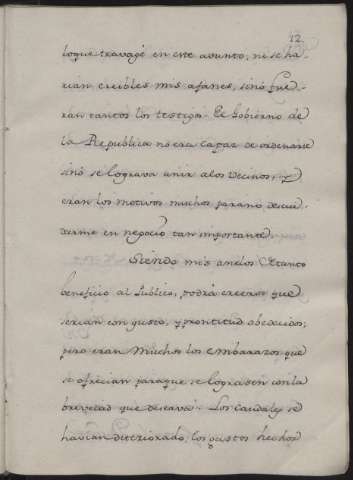 12
loque travagé en este asunto, ni se ha-
rian creibles mis afanes, sinó fue-
rán tantos los testigos. El Gobierno de
la Republica no era capaz de ordenarse
sinó se lograva unir alos Vecinos, y
eran los motivos muchos parano descui-
darme en negocio tan importante
Siendo mis anelos tanto
beneficio al Publico, podrá creerse que
serian con gusto, y prontitud obedecidos;
pero eran Muchos los Embarazos que
se ofrecian paraque se lograsen conla
brevedad que deseava. Los Caudales se
havian deteriorado, los gastos hechos